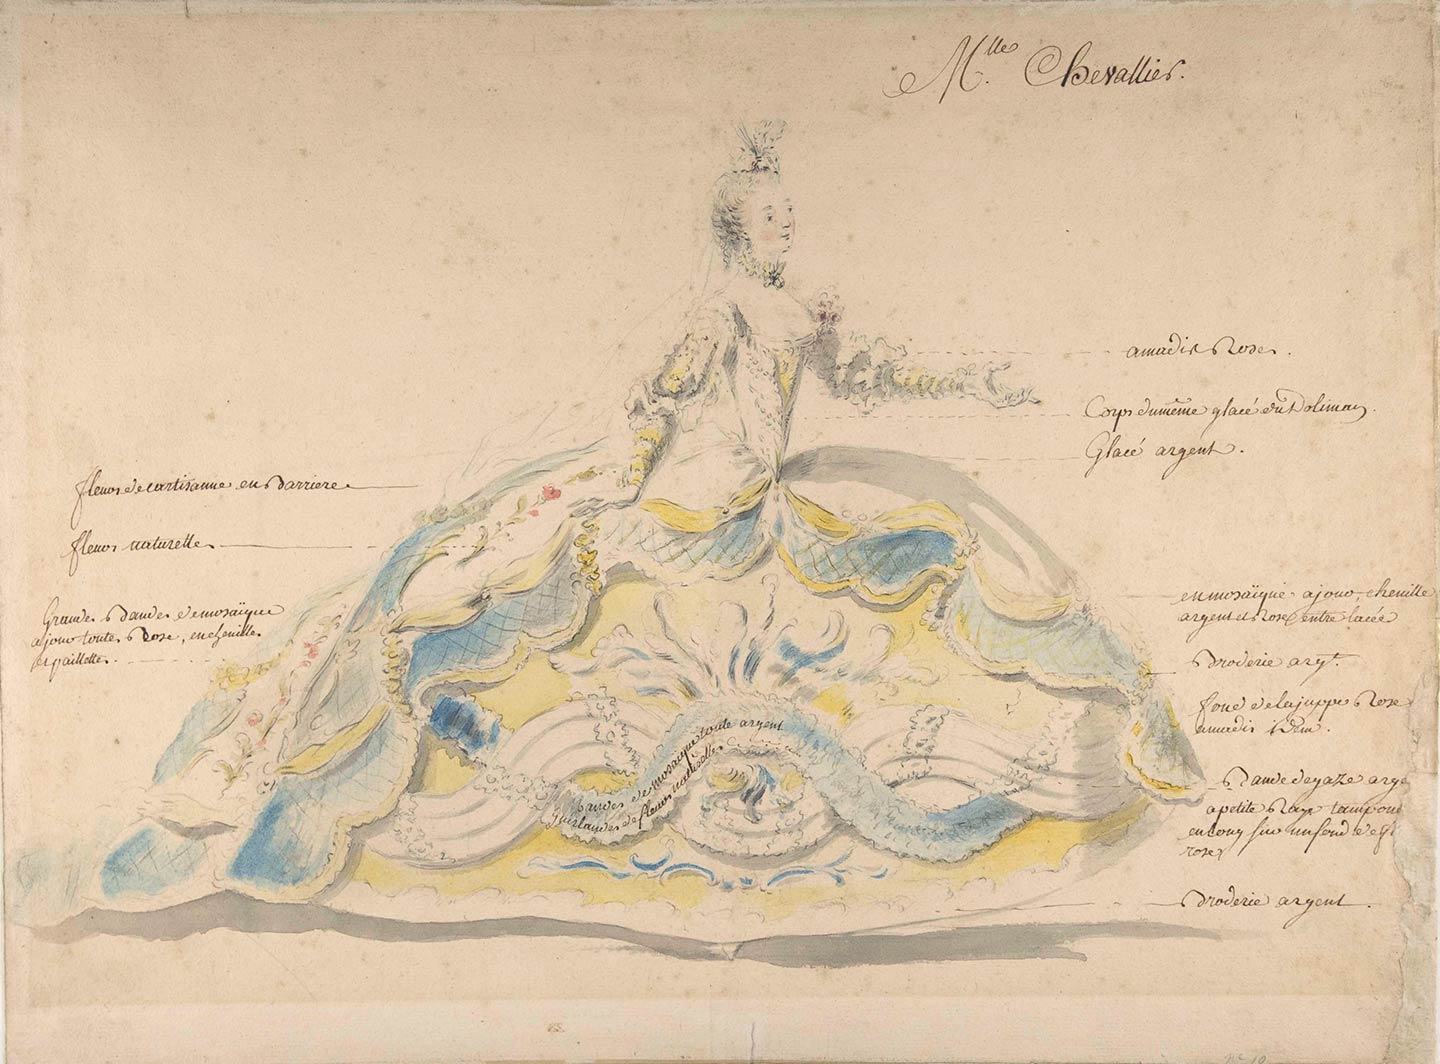 Mlle Chevallier.
amadis Rose.
Corps du même glacé du Doliman.
Glacé argent.
fleurs de cartisanne en Barriere
fleurs naturelles
Grandes Bandes de mosaïque
a jour toute Rose, en chenille
et paillettes.
en mosaïque a jour, chenille
argent et Rose entre lacée
Broderie argt.
fond de la juppe Rose
amadis idem.
Bande de gaze arge
a petite Raye tamponé
en long sur un fond de
rose
Broderie argent
Bandes de mosaique toute argent
Guirlandes de fleurs naturelles
no. 10